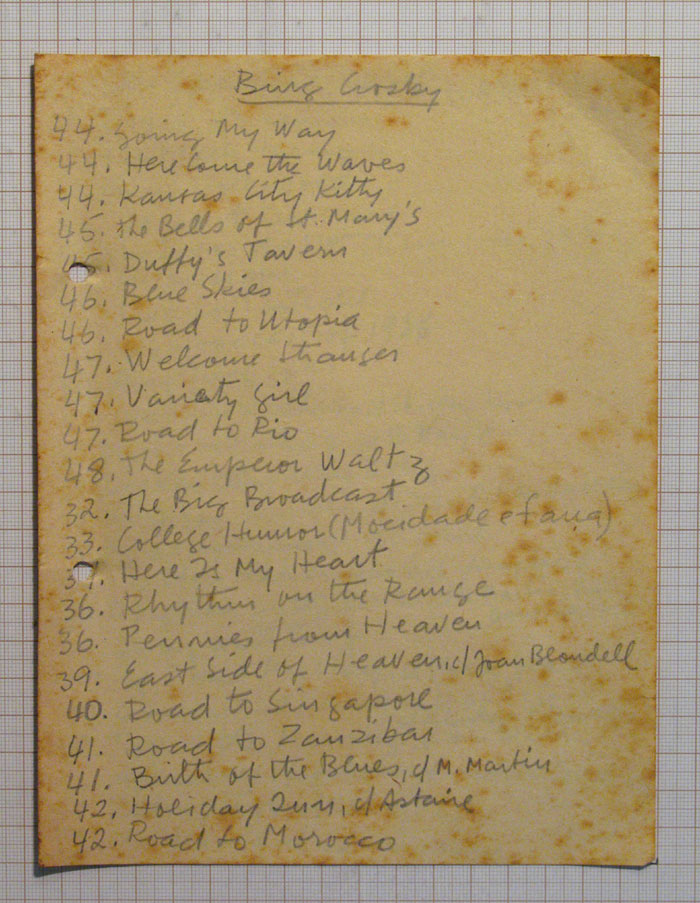 Bing Crosby
44. Going My Way
44. Here Come the Waves
44. Kansas City Kitty
45. The Bells of St. Mary's
45. Duffy's Tavern
46. Blue Skies
46. Road to Utopia
47. Welcome Stranger
47. Variety Girl
47. Road to Rio
48. The Emperor Waltz
32. The Big Broadcast
33. College Humor (Mocidade e farra)
Here Is My Heart
36. Rhythm on the Range
36. Pennies from Heaven
39. East Side of Heaven, c/ Joan Blondell
40. Road to Singapore
41. Road to Zanzibar
41. Birth of the Blues, c/ M. Martin
42. Holiday Inn, c/ Astaire
42. Road to Morocco